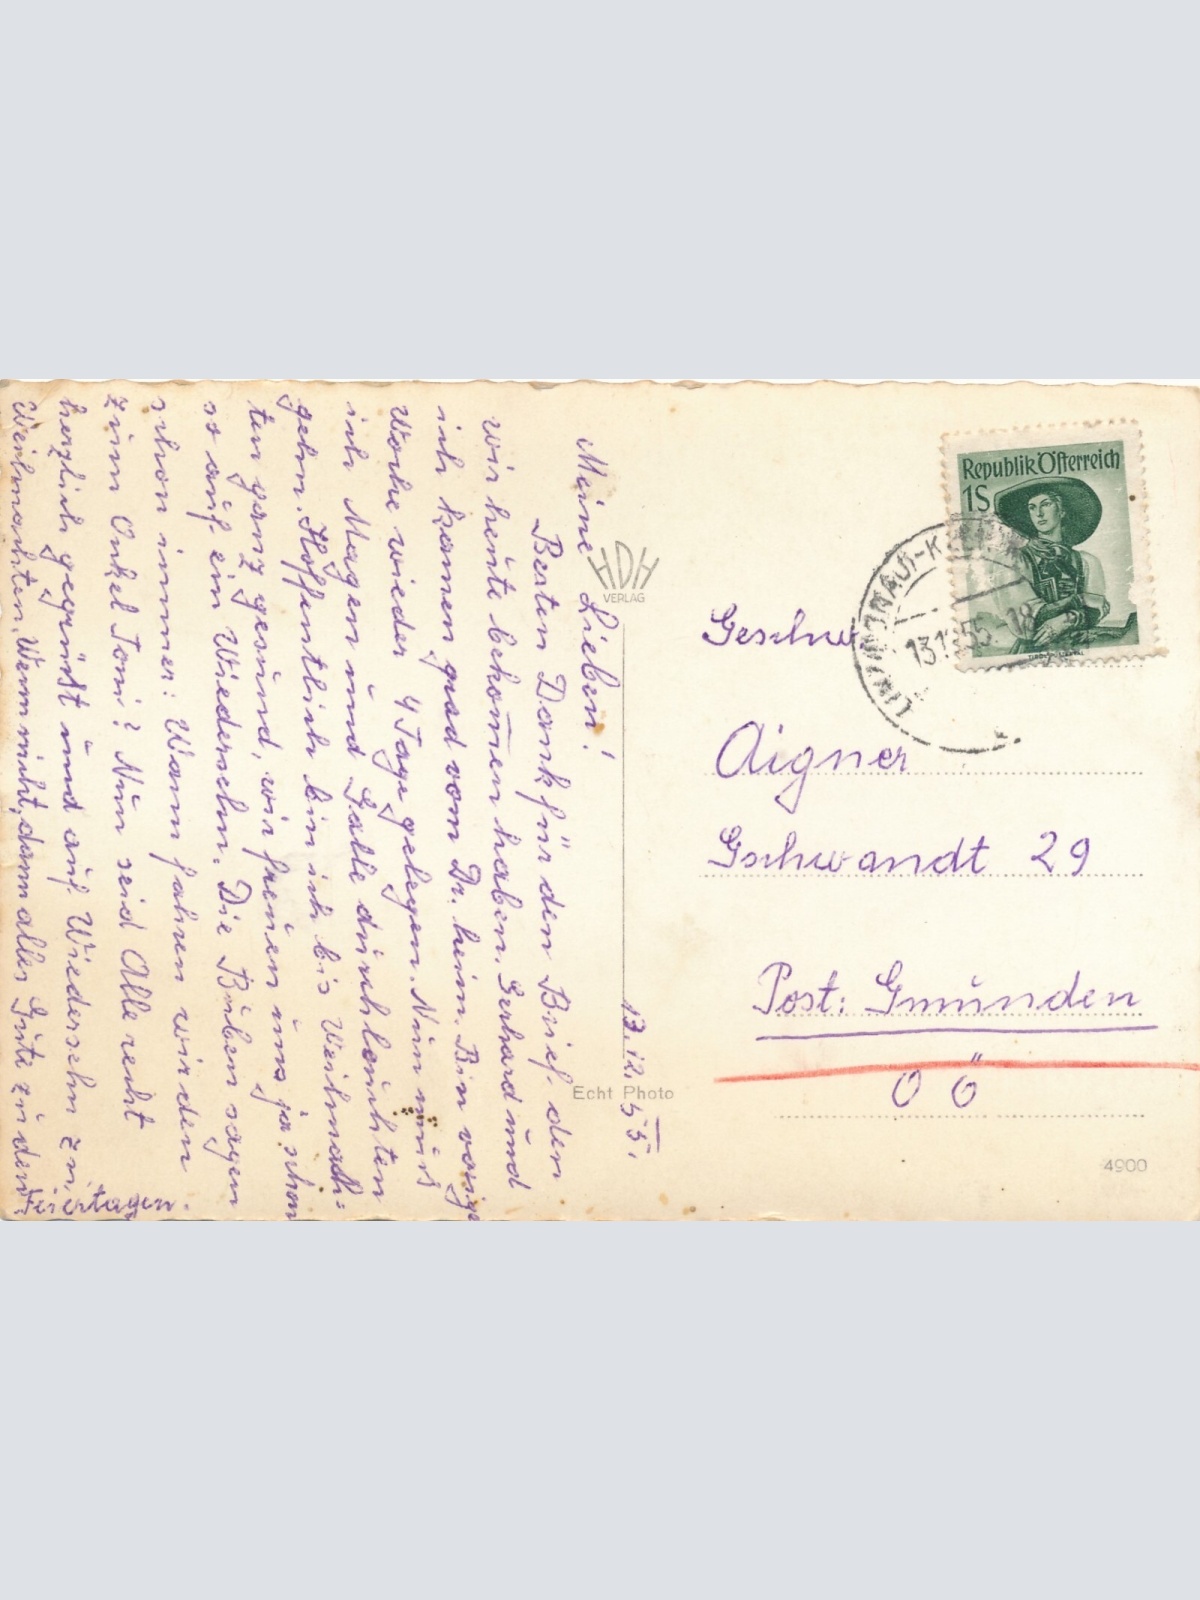 13.12.55.
Meine Lieben!
Besten Dank für den Brief den
wir heute bekom̄en haben. Gerhard und
ich kamen grad vom Dr. heim. Bin vorige
Woche wieder 4 Tage gelegen. Nun muß
ich Magen und Galle durchleuchten
gehn. Hoffentlich bin ich bis Weihnach-
ten ganz gesund, wir freuen uns ja schon
so auf ein Wiedersehn. Die Buben sagen
schon immer: Wann fahren wir den
zum Onkel Toni? Nun seid Alle recht
herzlich gegrüßt und auf Wiedersehn zu
Weihnachten. Wenn nicht, dann alles Gute zu den
Feiertagen.
HDH
VERLAG
Echt Photo
Republik Österreich
1S
13 55-18
Geschw
Aigner
Gschwandt 29
Post: Gmünden
OÖ
4900